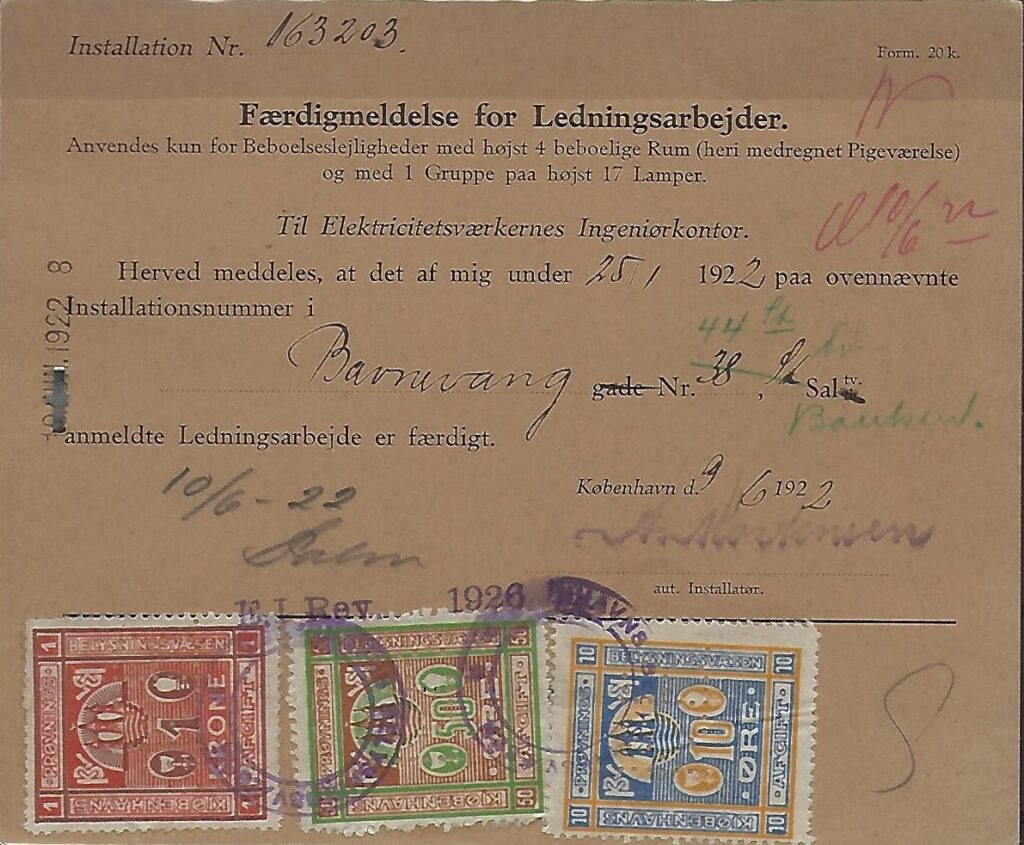 Installation Nr. 163203.
Form. 20 k.
Færdigmeldelse for Ledningsarbejder.
Anvendes kun for Beboelseslejligheder med højst 4 beboelige Rum (heri medregnet Pigeværelse)
og med 1 Gruppe paa højst 17 Lamper.
Til Elektricitetsværkernes Ingeniørkontor.
10/6 22
Herved meddeles, at det af mig under 25/1 1922 paa ovennævnte
Installationsnummer i
1922 8
44 St
Bavnevang gade Nr. 38, St Sal tv.
anmeldte Ledningsarbejde er færdigt.
10/6-22
København d. 9/6 1922
Mortensen
aut. Installatør.
E.I. Rev. 1926
BELYSNINGSVÆSEN
PRØVNINGS-
AFGIFT
KJØBENHAVNS
1 KRONE
1 1 1 1
BELYSNINGSVÆSEN
PRØVNINGS-
AFGIFT
KJØBENHAVNS
50 ØRE
50 50
BELYSNINGSVÆSEN
PRØVNINGS-
AFGIFT
KJØBENHAVNS
10 ØRE
10 10 10 10